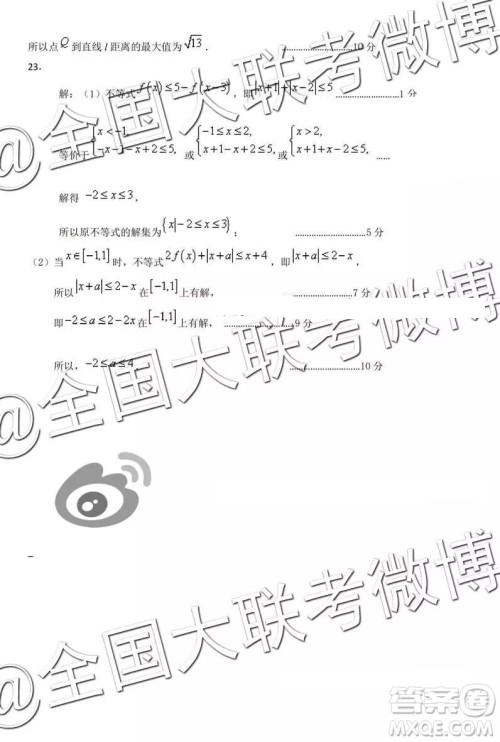 所以点 Q 到直线 l 距离的最大值为 √13 . ……………………10 分
23.
解:(1)不等式 f(x)≤5-f(x-3),即|x+1|+|x-2|≤5 ……………………1 分
等价于{x<-1, -x-1-x+2≤5, 或{-1≤x≤2, x+1-x+2≤5, 或{x>2, x+1+x-2≤5, ……
解得 -2≤x≤3,
所以原不等式的解集为{x|-2≤x≤3}; ……………………5 分
(2)当 x∈[-1,1] 时,不等式 2f(x)+|x+a|≤x+4,即|x+a|≤2-x,
所以 |x+a|≤2-x 在[-1,1]上有解, ……………………7 分
即 -2≤a≤2-2x 在[-1,1]上有解, ……………………9 分
所以, -2≤a≤4. ……………………10 分
@全国大联考微博
@全国大联考微博
@全国大联考微博
答案圈
MXQE.COM